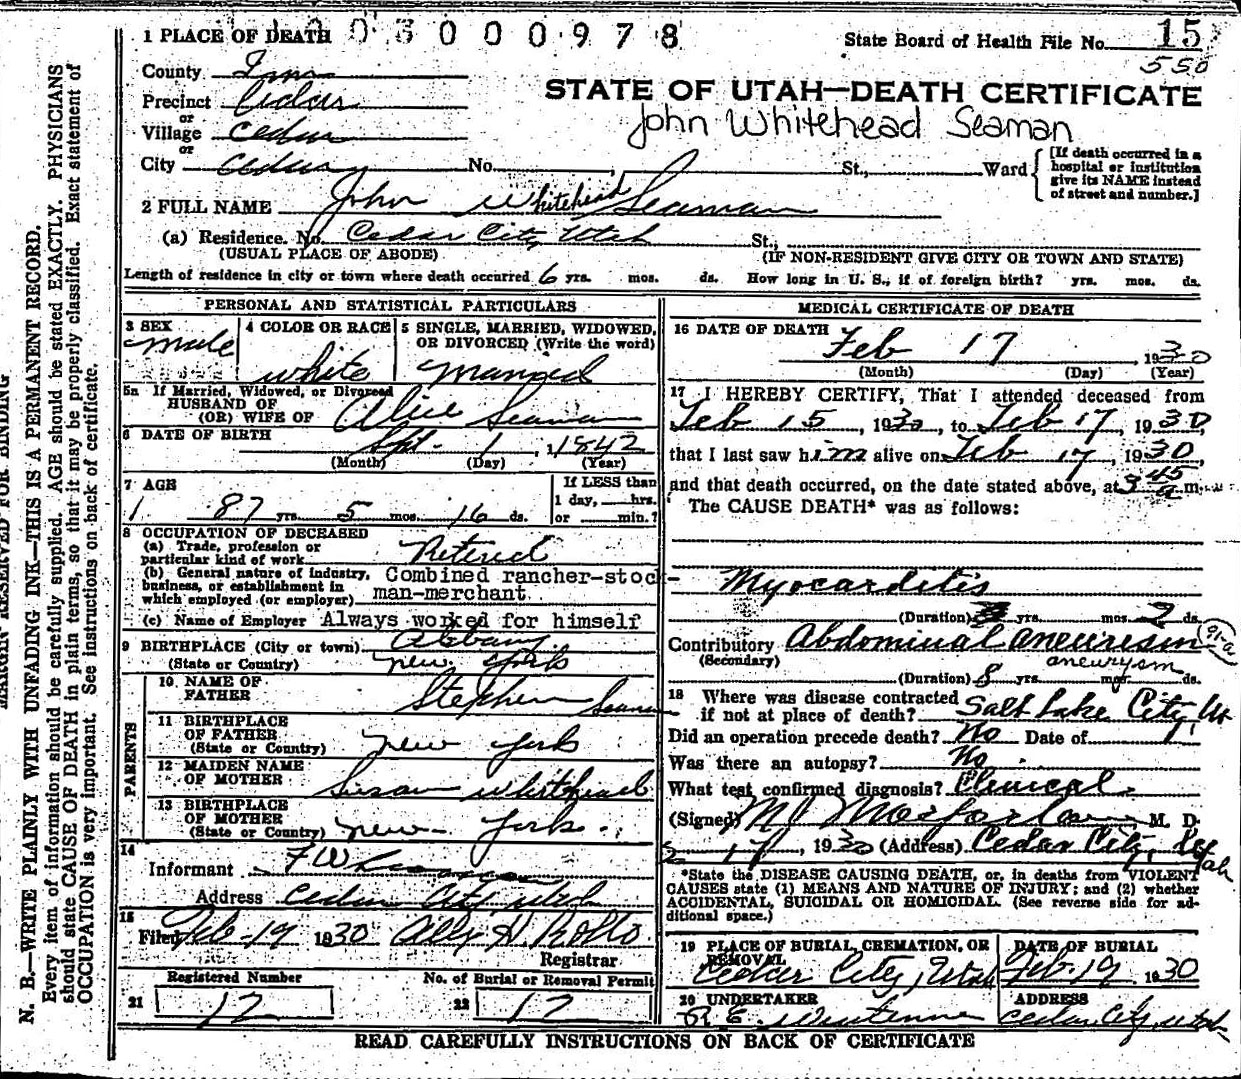 1 PLACE OF DEATH 03000978
State Board of Health File No. 15
550
County Iron
STATE OF UTAH—DEATH CERTIFICATE
Precinct Cedar
or
John Whitehead Seaman
Village Cedar
or
City Cedar No. St., Ward
[If death occurred in a hospital or institution give its NAME instead of street and number.]
2 FULL NAME John Whitehead Seaman
(a) Residence. No. Cedar City, Utah St.,
(USUAL PLACE OF ABODE) (IF NON-RESIDENT GIVE CITY OR TOWN AND STATE)
Length of residence in city or town where death occurred 6 yrs. mos. ds. How long in U. S., if of foreign birth? yrs. mos. ds.
PERSONAL AND STATISTICAL PARTICULARS
3 SEX 4 COLOR OR RACE 5 SINGLE, MARRIED, WIDOWED,
OR DIVORCED (Write the word)
male white married
5a If Married, Widowed, or Divorced
HUSBAND OF
(OR) WIFE OF Alice Seaman
6 DATE OF BIRTH Sept. 1, 1842
(Month) (Day) (Year)
7 AGE If LESS than
1 day, hrs.
87 yrs. 5 mos. 16 ds. or min.?
8 OCCUPATION OF DECEASED
(a) Trade, profession or
particular kind of work Retired
(b) General nature of industry, Combined rancher-stock-
business, or establishment in man-merchant
which employed (or employer)
(c) Name of Employer Always worked for himself
9 BIRTHPLACE (City or town) Albany
(State or Country) new york
PARENTS
10 NAME OF
FATHER Stephen Seaman
11 BIRTHPLACE
OF FATHER
(State or Country) new york
12 MAIDEN NAME
OF MOTHER Susan whitehead
13 BIRTHPLACE
OF MOTHER
(State or Country) new york
14
Informant
Address Cedar City Utah
15
Filed Feb-19 1930
Registrar
Registered Number No. of Burial or Removal Permit
21 12 22 12
MEDICAL CERTIFICATE OF DEATH
16 DATE OF DEATH Feb 17 1930
(Month) (Day) (Year)
17 I HEREBY CERTIFY, That I attended deceased from
Feb 15, 1930, to Feb 17, 1930,
that I last saw him alive on Feb 17, 1930,
and that death occurred, on the date stated above, at 3 45 a m.
The CAUSE DEATH* was as follows:
Myocarditis
(Duration) yrs. mos. 2 ds.
Contributory Abdominal aneuresm 91-a
(Secondary) aneurysm
(Duration) 8 yrs. mos. ds.
18 Where was disease contracted
if not at place of death? Salt Lake City, Ut
Did an operation precede death? No Date of
Was there an autopsy? No
What test confirmed diagnosis? Clinical
(Signed) M J Macfarlane M. D.
2 17, 1930 (Address) Cedar City, Utah
*State the DISEASE CAUSING DEATH, or, in deaths from VIOLENT
CAUSES state (1) MEANS AND NATURE OF INJURY; and (2) whether
ACCIDENTAL, SUICIDAL OR HOMICIDAL. (See reverse side for ad-
ditional space.)
19 PLACE OF BURIAL, CREMATION, OR DATE OF BURIAL
REMOVAL
Cedar City, Utah Feb. 19 1930
20 UNDERTAKER ADDRESS
Cedar City, Utah
READ CAREFULLY INSTRUCTIONS ON BACK OF CERTIFICATE
MARGIN RESERVED FOR BINDING
N. B.—WRITE PLAINLY WITH UNFADING INK—THIS IS A PERMANENT RECORD.
Every item of information should be carefully supplied. AGE should be stated EXACTLY. PHYSICIANS
should state CAUSE OF DEATH in plain terms, so that it may be properly classified. Exact statement of
OCCUPATION is very important. See instructions on back of certificate.